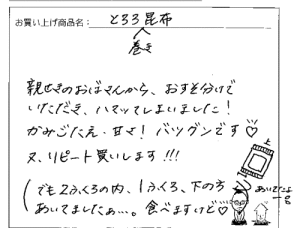 お買い上げ商品名： とろろ昆布
巻き
親せきのおばさんから、おすそ分けで
いただき、ハマッてしまいました！
かみごたえ・甘さ！バツグンです♡
又、リピート買いします!!!
(でも2ふくろの内、1ふくろ、下の方
あいてましたぁ…。食べますけど♡
上
あいてたよ